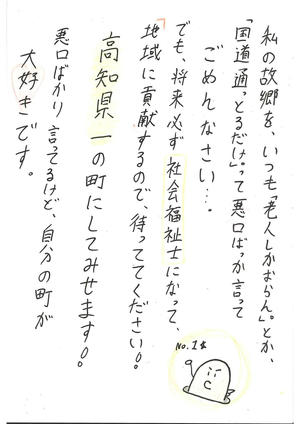 私の故郷を、いつも「老人しかおらん。」とか、
「国道通っとるだけ。」って悪口ばっか言って
ごめんなさい…。
でも、将来必ず社会福祉士になって、
地域に貢献するので、待っててください!!
高知県一の町にしてみせます!!
悪口ばかり言ってるけど、自分の町が
大好きです。
No.1☆